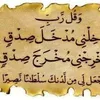 وَقُل رَّبِّ
أَدْخِلْنِي مُدْخَلَ صِدْقٍ
وَأَخْرِجْنِي مُخْرَجَ صِدْقٍ
وَاجْعَل لِّي مِن لَّدُنكَ سُلْطَانًا نَّصِيرًا